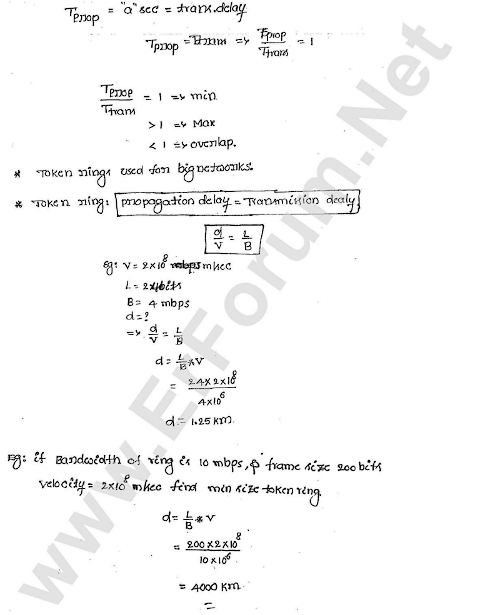 Tprop = "a" sec = trans.delay
Tprop = Ttrans => Tprop/Ttrans = 1
Tprop/Ttrans = 1 => min
> 1 => Max
< 1 => overlap.
* Token rings used for big networks.
* Token ring: propagation delay = Transmission dealy
d/v = L/B
Eg: V = 2×10^8 m/sec
L = 24bits
B = 4 mbps
d = ?
=> d/v = L/B
d = L/B * V
= 24×2×10^8 / 4×10^6
d = 1.25 km.
Eg: if Bandwidth of ring is 10 mbps, & frame size 200 bits
velocity = 2×10^8 m/sec find min size token ring.
d = L/B * V
= 200×2×10^8 / 10×10^6
= 4000 KM
=
www.ErForum.Net